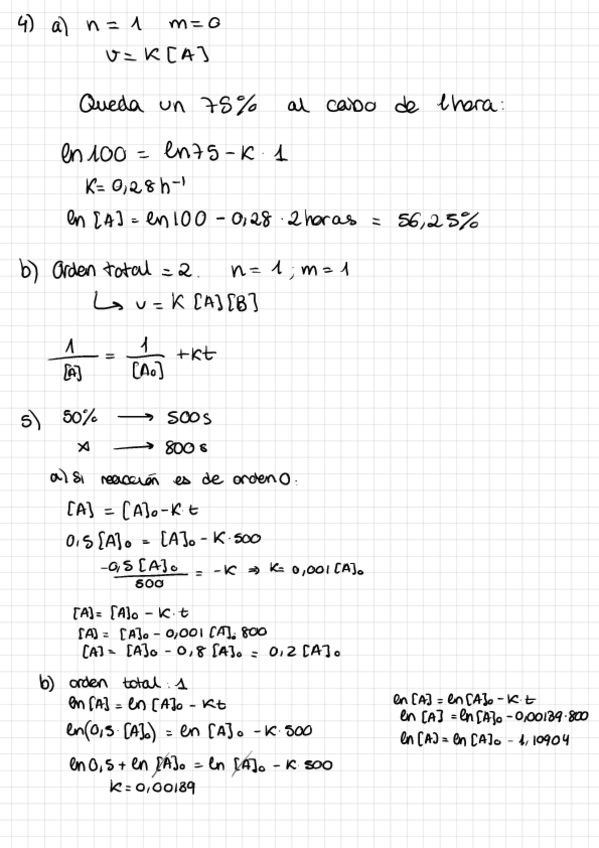 4) a) n = 1 m = 0
v = K [A]
Queda un 75% al cabo de 1 hora:
ln 100 = ln 75 - K · 1
K = 0,28 h⁻¹
ln [A] = ln 100 - 0,28 · 2 horas = 56,25%
b) Orden total = 2. n = 1 ; m = 1
↳ v = K [A][B]
1/[A] = 1/[A₀] + Kt
5) 50% → 500 s
x → 800 s
a) Si reacción es de orden 0:
[A] = [A]₀ - K · t
0,5 [A]₀ = [A]₀ - K · 500
-0,5 [A]₀/500 = -K ⇒ K = 0,001 [A]₀
[A] = [A]₀ - K · t
[A] = [A]₀ - 0,001 [A]₀ 800
[A] = [A]₀ - 0,8 [A]₀ = 0,2 [A]₀
b) orden total : 1
ln [A] = ln [A]₀ - Kt
ln (0,5 · [A]₀) = ln [A]₀ - K · 500
ln 0,5 + ln [A]₀ = ln [A]₀ - K · 500
K = 0,00139
ln [A] = ln [A]₀ - K · t
ln [A] = ln [A]₀ - 0,00139 · 800
ln [A] = ln [A]₀ - 1,10904